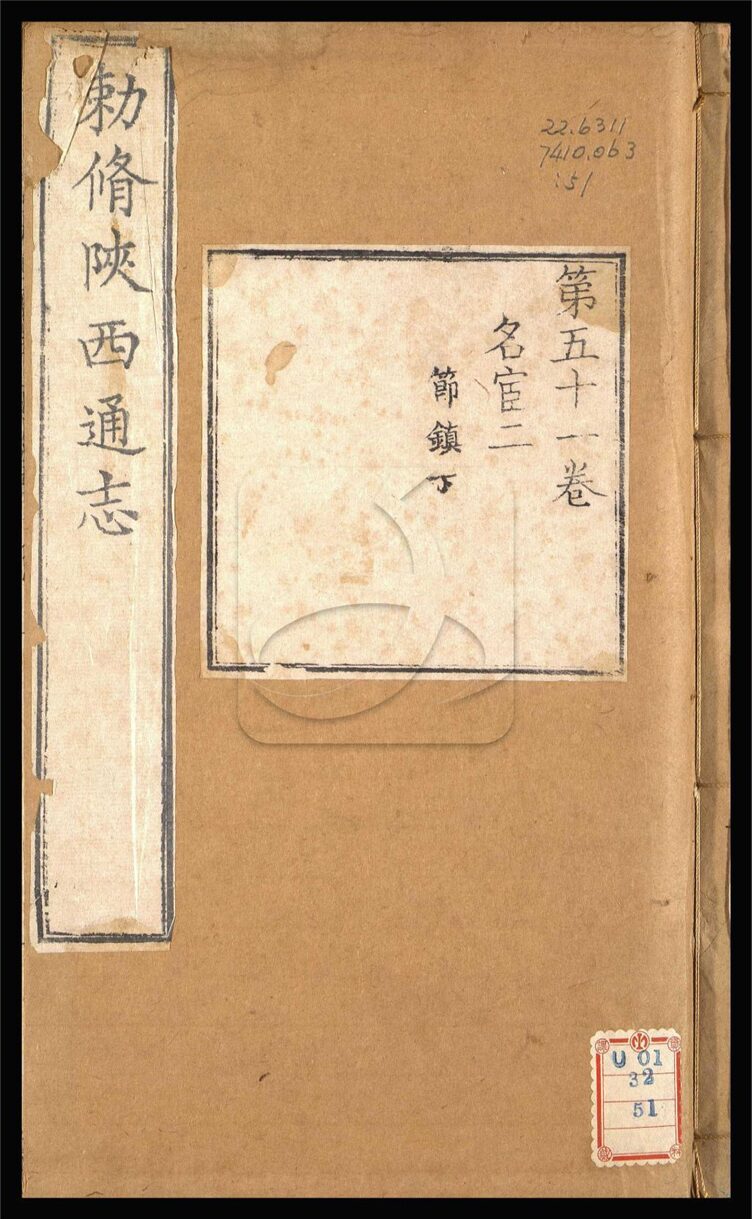 勅脩陝西通志
22.6311
7410.063
:51
第五十一卷
名宦二
節鎮下
U 01
32
51